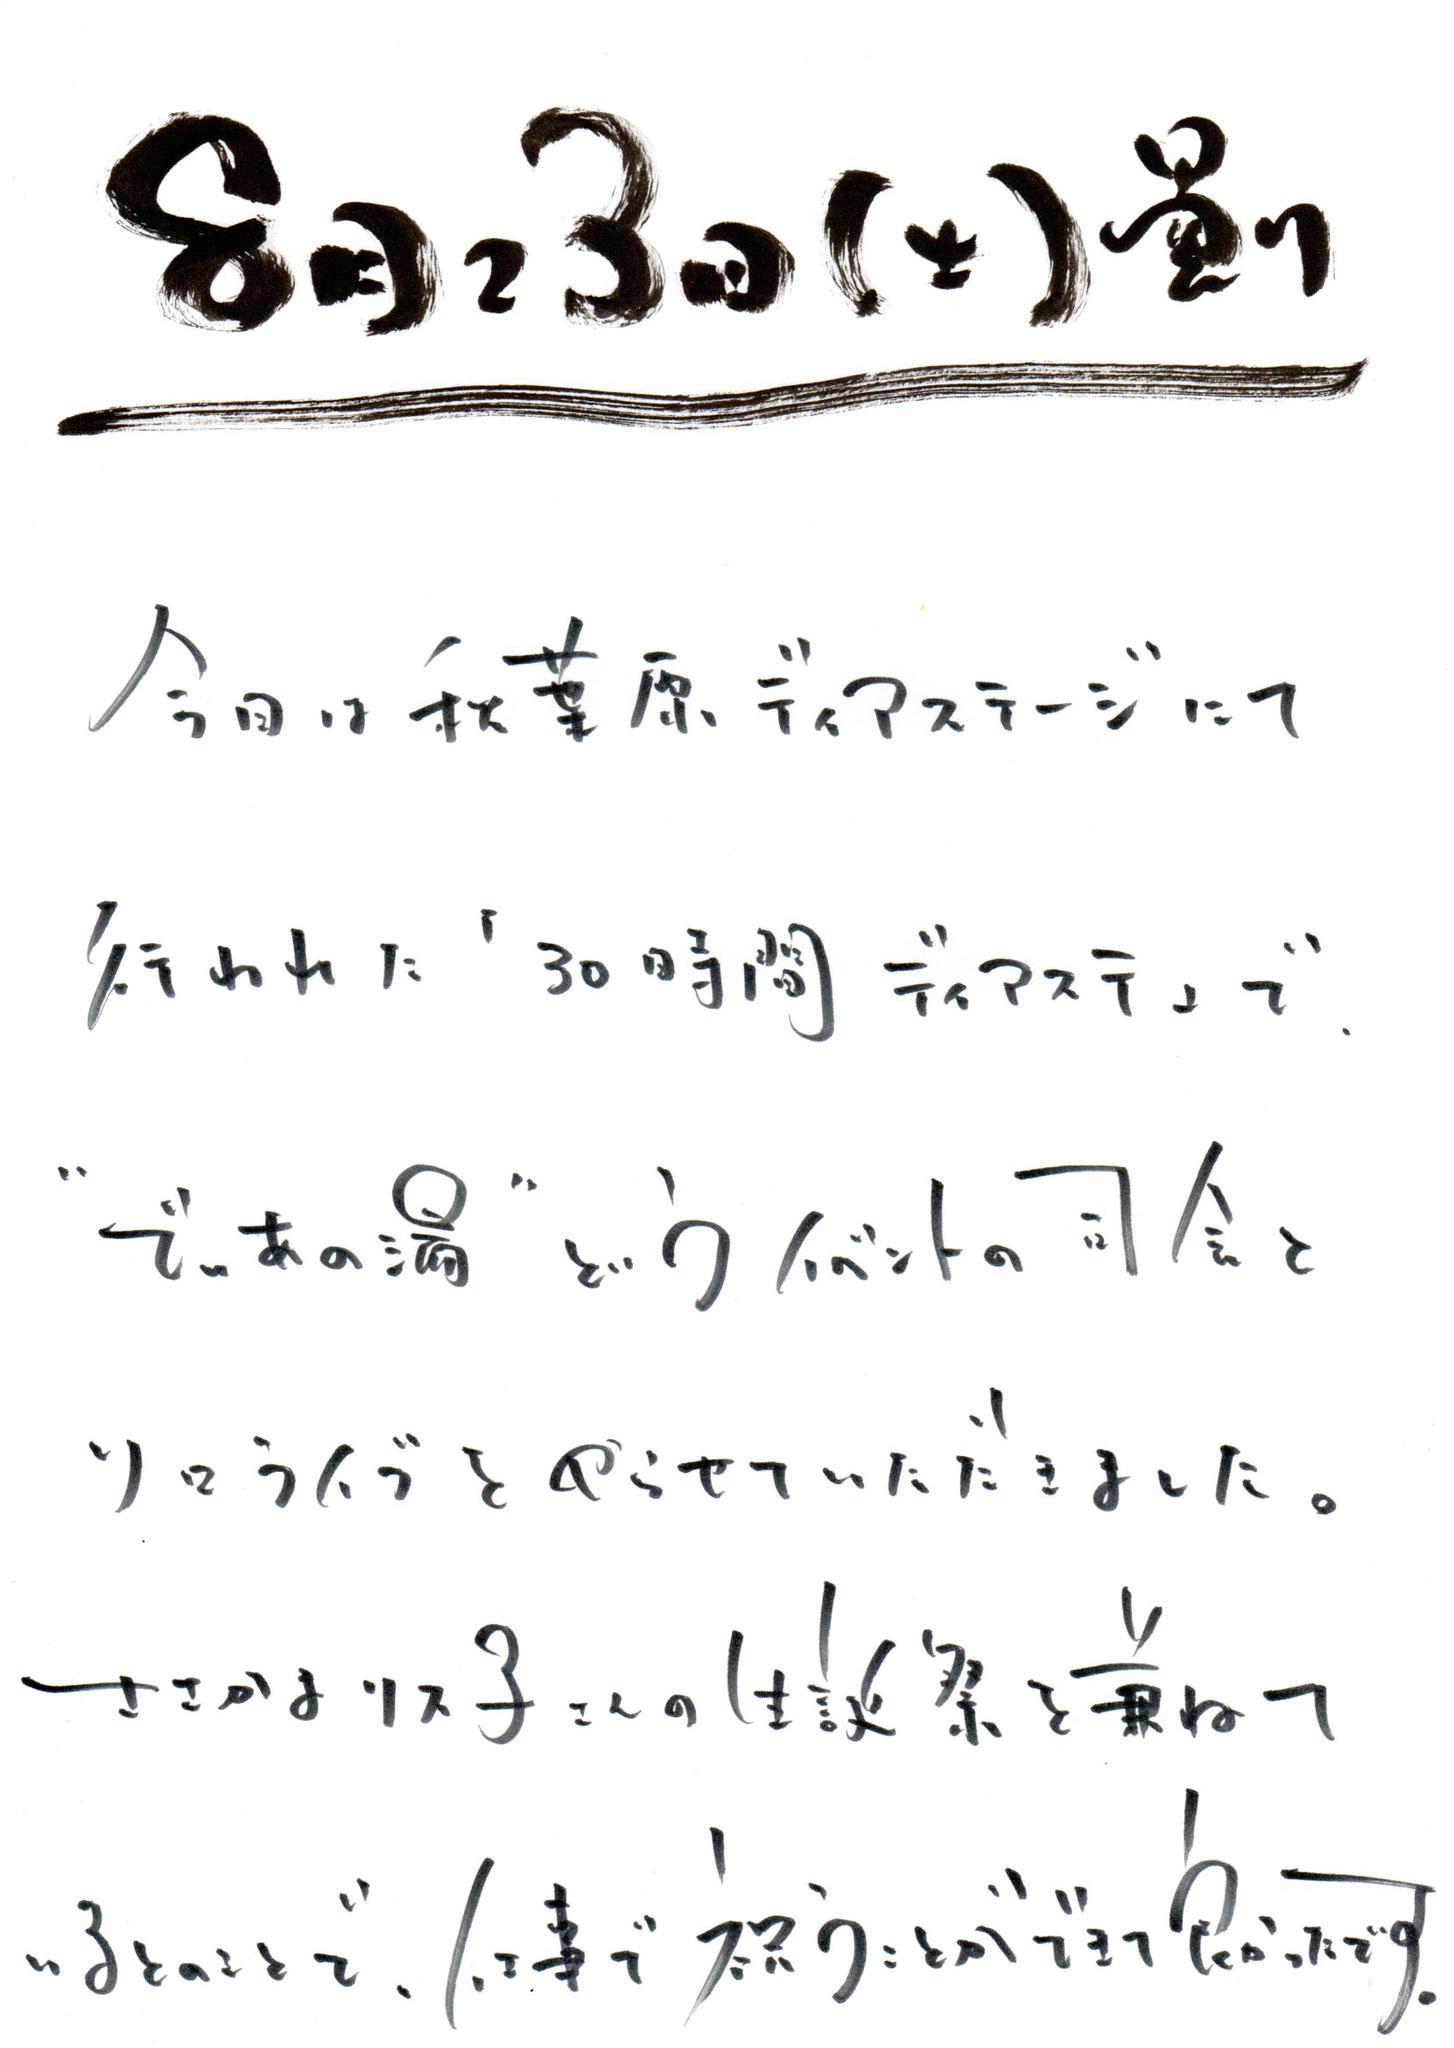 8月23日(土)曇り
今日は秋葉原ディアステージにて
行われた「30時間ディアステ」で、
"でぃあの湯"というイベントの司会と
ソロライブをやらせていただきました。
ささかまリス子さんの生誕祭を兼ねて
いるとのことで、仕事で祝うことができて良かったです。